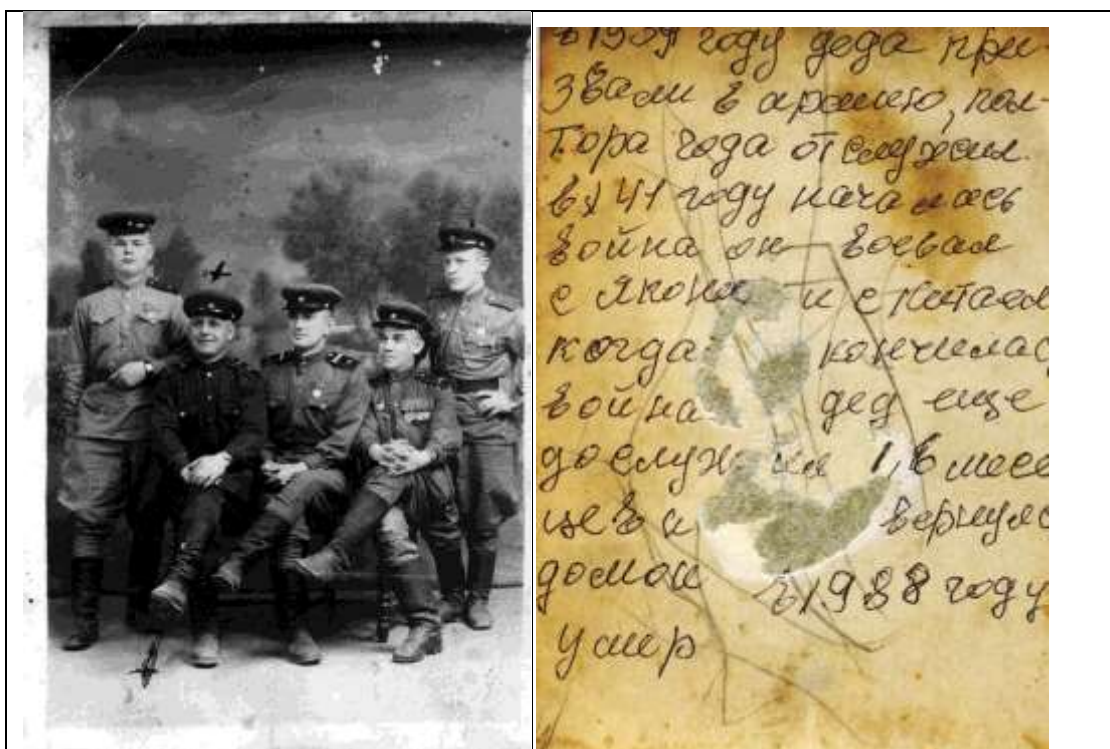 в 1939 году деда при-
звали в армию, пол-
тора года отслужил.
в 41 году началась
война он воевал
с Япони и с Китаем
когда кончилас
война дед еще
дослужил 1,6 месе
цев и вернулс
домой в 1988 году
умер